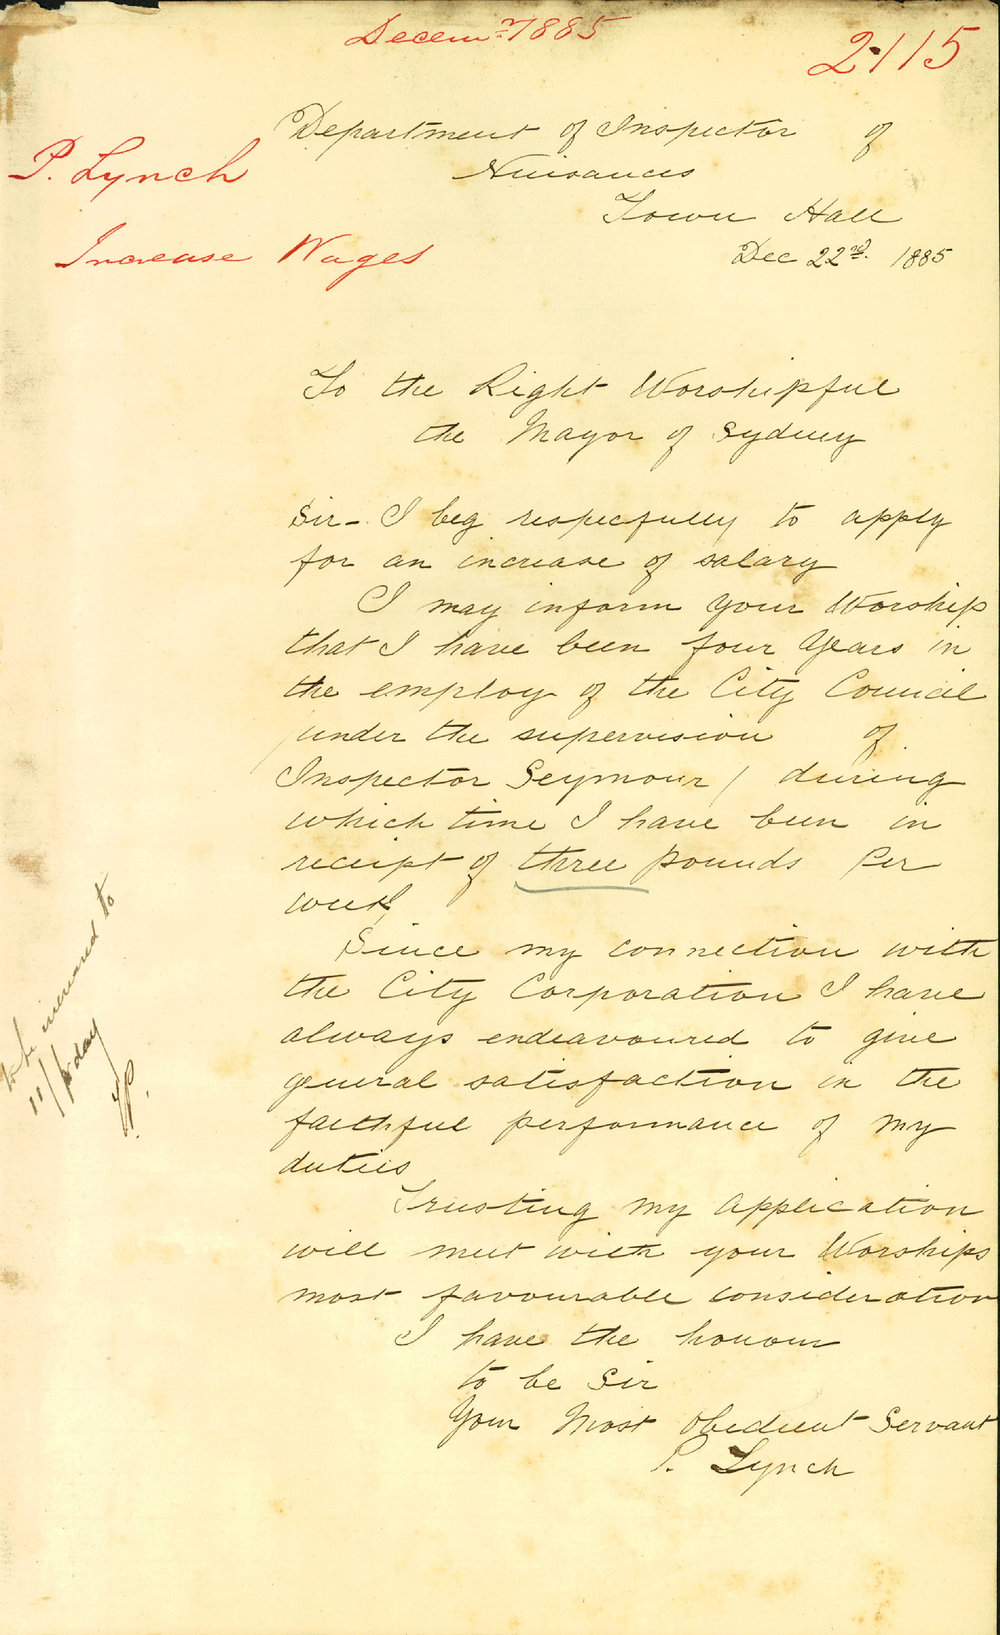 Decemr 1885
2115
P. Lynch
Increase Wages
Department of Inspector of
Nuisances
Town Hall
Dec 22nd. 1885
To the Right Worshipful
the Mayor of Sydney
Sir - I beg respecfully to apply
for an increase of salary
I may inform your Worship
that I have been four Years in
the employ of the City Council
/under the supervision of
Inspector Seymour/ during
which time I have been in
receipt of three pounds Per
week
Since my connection with
the City Corporation I have
always endeavoured to give
general satisfaction in the
faithful performance of my
duties
Trusting my Application
will meet with your Worships
most favourable consideration
I have the honour
to be Sir
Your Most Obedient Servant
P. Lynch
to be increased to
11/ day